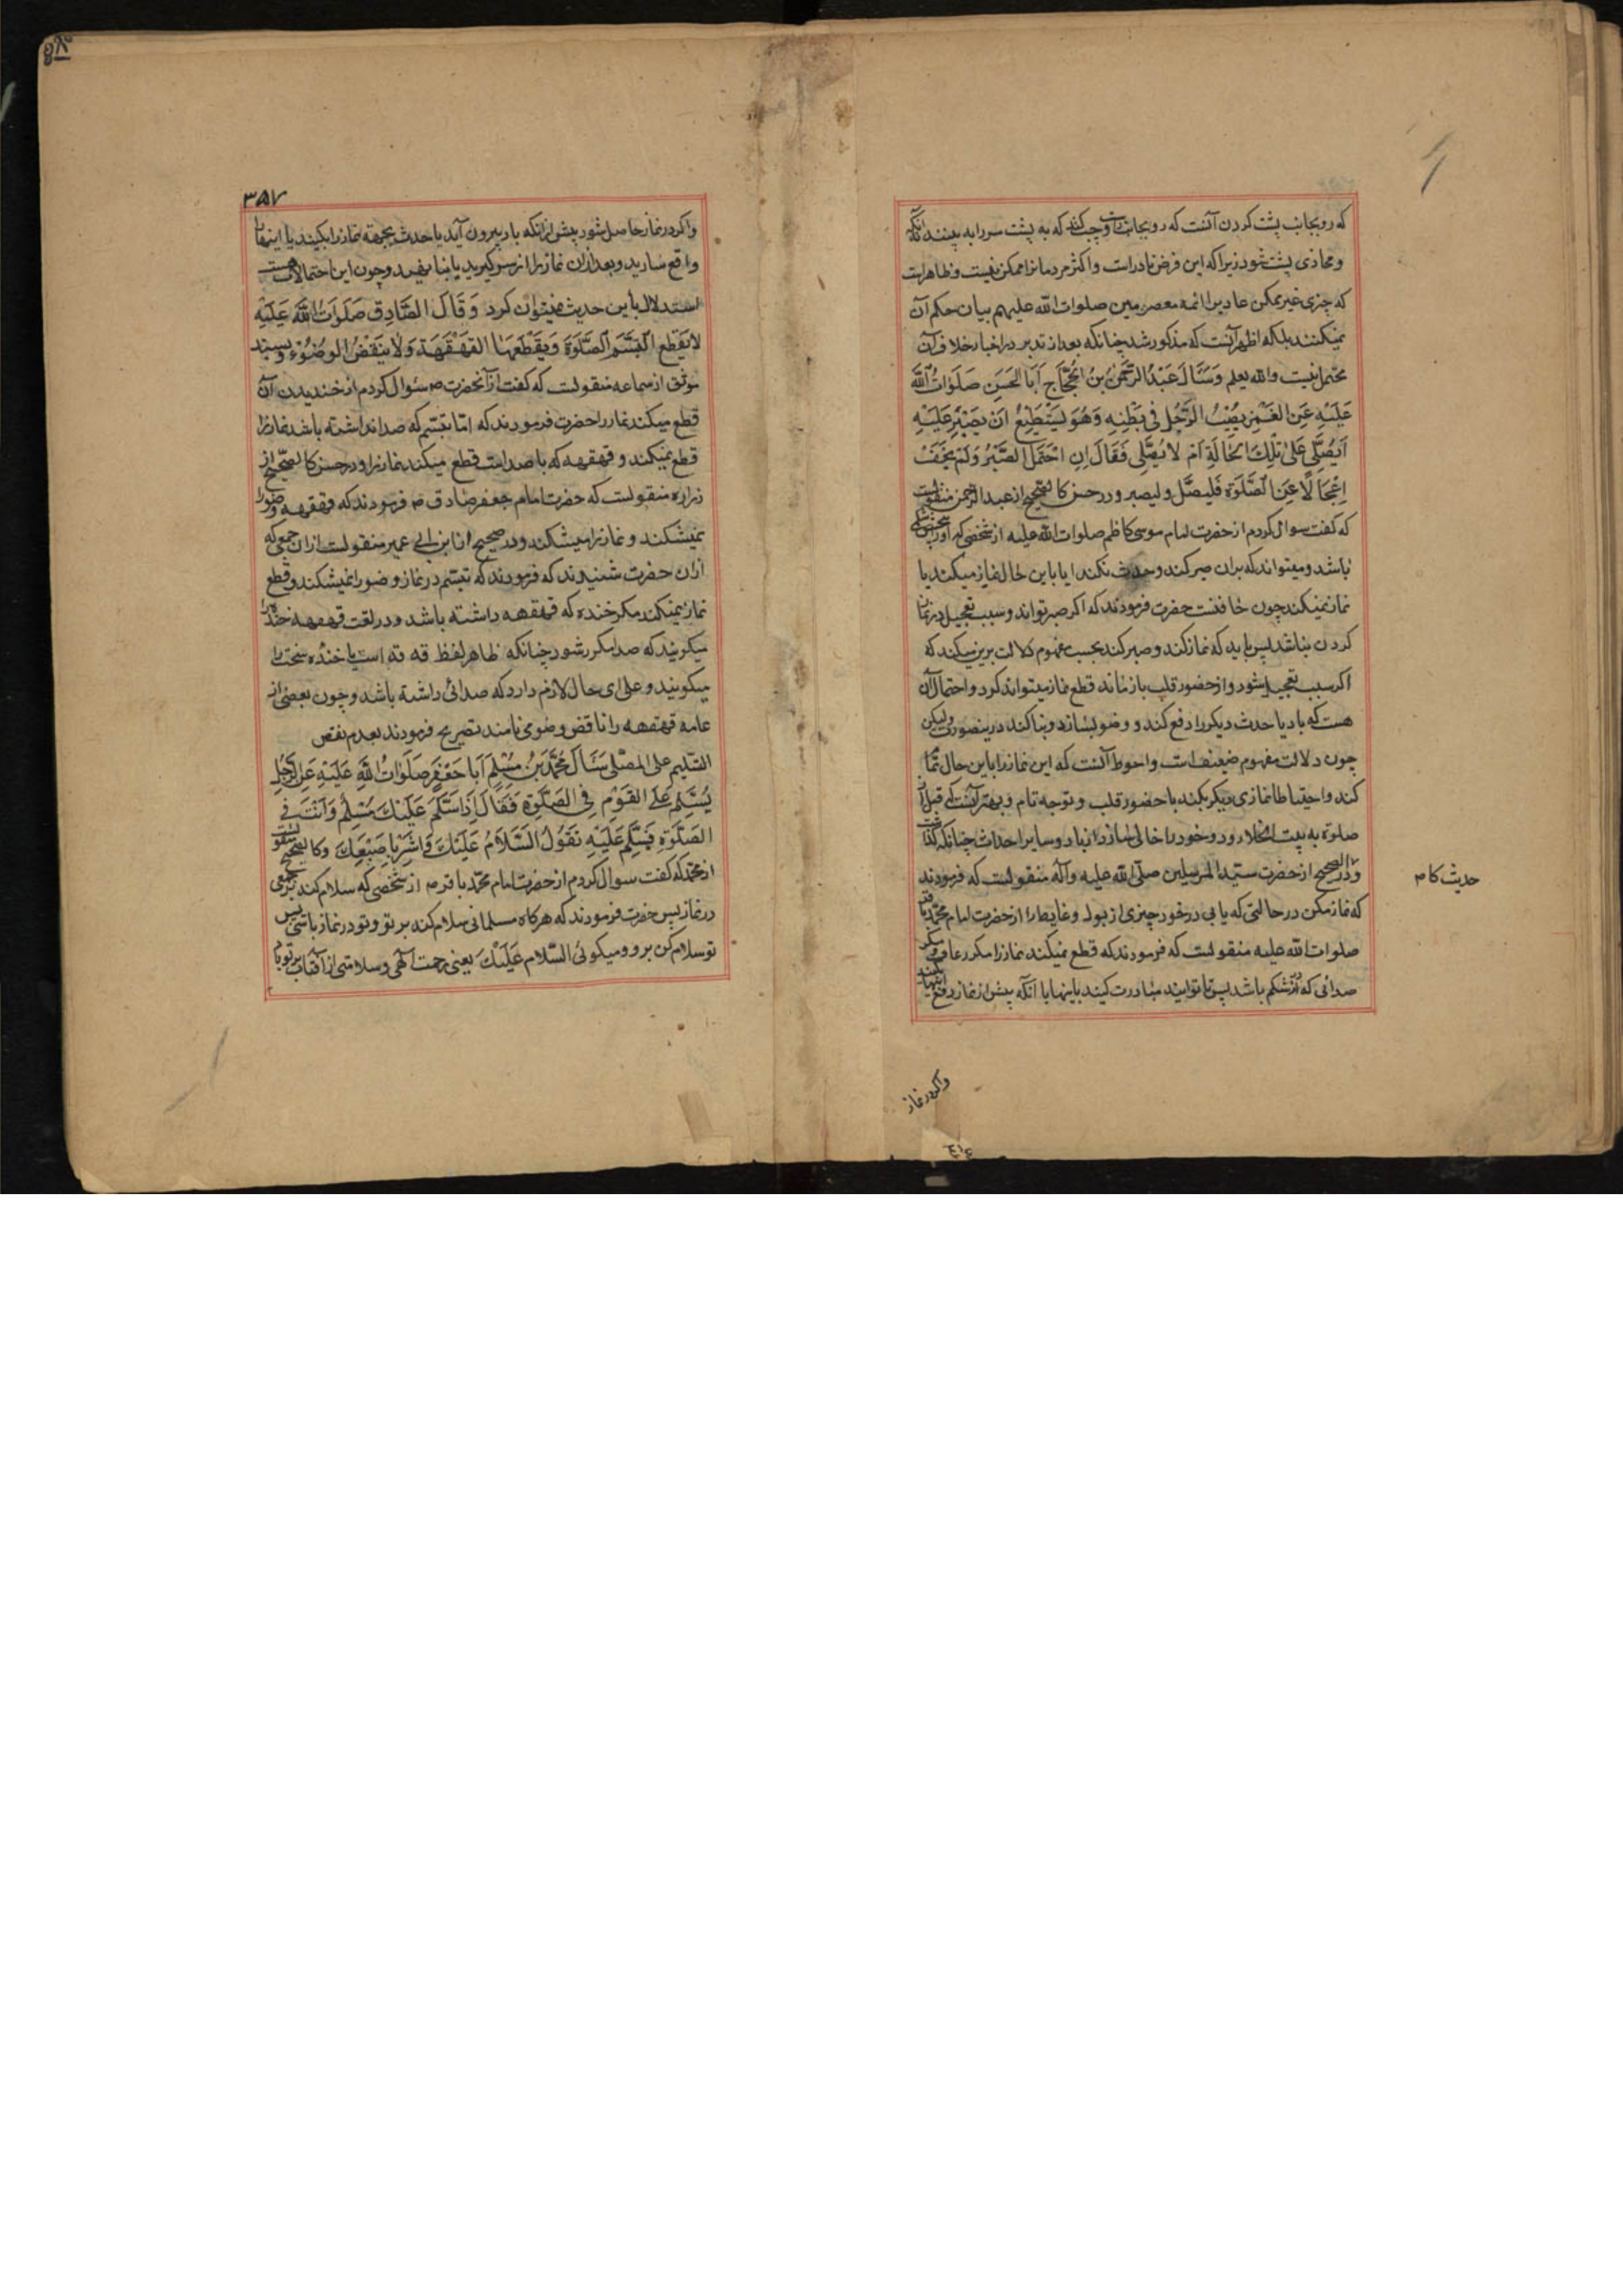 که رو بجانب پشت کردن آنست که رو بجانب راست و چپ کند که به پشت سر را به بیند آنکه
و محاذی پشت شود زیرا که این فرض نادر است و اکثر مردمانرا ممکن نیست و ظاهر است
که چیزی غیر ممکن عادیرا ائمه معصومین صلوات الله علیهم بیان حکم آن
نمیکنند بلکه اظهر آنست که مذکور شد چنانکه بعد از تدبر در اخبار خلاف آن
محتمل نیست والله یعلم وَسَئَالَ عَبْدُ الرَّحْمٰنِ بْنُ الْحَجّاجِ اَبَا الْحَسَنِ صَلَوٰاتُ اللّٰهِ
عَلَیْهِ عَنِ الغَمْزِ یُصْیبُ الرَّجُلَ فی بَطْنِهِ وَهُوَ یَسْتَطِیْعُ اَنْ یَصْبِرَ عَلَیْهِ
اَیُصَلّی عَلیٰ تِلْكَ الْحَالَةِ اَمْ لٰا یُصَلّی فَقَالَ اِنِ احْتَمَلَ الصَّبْرَ وَلَمْ یَخَفْ
اِعْجَالًا عَنِ الصَّلٰوةِ فَلْیُصَلِّ ولیصبر و در حسن کالصحیح از عبدالرحمن منقولست
که گفت سوال کردم از حضرت امام موسی کاظم صلوات الله علیه از شخصی که او را
باشد و میتواند که بران صبر کند و حدث نکند ایا باین حال نماز میکند یا
نماز نمیکند چون حاقنست حضرت فرمودند که اگر صبر تواند و سبب تعجیل در نماز
کردن نباشد پس باید که نماز کند و صبر کند بحسب مفهوم دلالت برین میکند که
اگر سبب تعجیل شود و از حضور قلب باز ماند قطع نماز میتواند کرد و احتمال آن
هست که باد یا حدث دیگر را دفع کند و وضو بسازد و بنا کند درینصورت ولیکن
چون دلالت مفهوم ضعیف است و احوط آنست که این نماز را باین حال تمام
کند و احتیاطا نمازی دیگر بکند با حضور قلب و توجه تام و بهتر آنست که قبل از
صلوة به بیت الخلا رود و خود را خالی سازد از باد و سایر احداث چنانکه گذشت
و در الصحیح از حضرت سیّد المرسلین صلّی الله علیه وآله منقولست که فرمودند
که نماز مکن در حالتی که یابی در خود چیزی از بول و غایط را از حضرت امام محمد باقر
صلوات الله علیه منقولست که فرمودند که قطع نمیکند نماز را مگر رعاف و مگر
صدائی که از شکم باشد پس تا توانید مبادرت کنید باینها با آنکه پیش از نماز رفع اینها کنید
حدیث کام
واگر در نماز
۳۵۷
واگر در نماز حاصل شود پیش از آنکه باد بیرون آید یا حدث بجهد نماز را بکنید یا اینها را
واقع سازید و بعد ازان نماز را از سر گیرید یا بنا نهید و چون این احتمالات هست
استدلال باین حدیث نمیتوان کرد وَقَالَ الصَّادِقُ صَلَوَاتُ اللّٰهِ عَلَیْهِ
لایَقْطَعُ التَّبَسُّمُ الصَّلٰوةَ وَیَقْطَعُهَا القَهْقَهَةُ وَلٰا یَنْقُضُ الوُضُوْءَ وبسند
موثق از سماعه منقولست که گفت از آنحضرت ص سئوال کردم از خندیدن آن
قطع میکند نماز را حضرت فرمودند که امّا تبسّم که صدا نداشته باشد نماز را
قطع نمیکند و قهقهه که با صداست قطع میکند نماز را و در حسن کالصحیح از
زراره منقولست که حضرت امام جعفر صادق ص فرمودند که قهقهه وضو را
نمیشکند و نماز را میشکند و در صحیح از ابن ابی عمیر منقولست ازان جمعی که
ازان حضرت شنیدند که فرمودند که تبسّم در نماز وضو را نمیشکند و قطع
نماز نمیکند مگر خنده که قهقهه داشته باشد و در لغت قهقهه خنده را
میگویند که صدا مکرر شود چنانکه ظاهر لفظ قه قه است یا خنده سخت را
میگویند و علی ای حال لازم دارد که صدائی داشته باشد و چون بعضی از
عامه قهقهه را ناقض وضو می نامند تصریح فرمودند بعدم نقض
التسلیم علی المصلّی سَئَالَ مُحَمَّدُ بْنُ مُسْلِمٍ اَبَا جَعْفَرٍ صَلَوٰاتُ اللّٰهِ عَلَیْهِ عَنِ الرَّجُلِ
یُسَلِّمُ عَلَی القَوْمِ فِی الصَّلٰوةِ فَقَالَ اِذَا سَلَّمَ عَلَیْكَ مُسْلِمٌ وَاَنْتَ فِی
الصَّلٰوةِ فَسَلِّمْ عَلَیْهِ تَقُولُ السَّلَامُ عَلَیْكَ وَاَشِرْ بِاِصْبَعِكَ وکالصحیح منقولست
از محمد که گفت سوال کردم از حضرت امام محمد باقر ص از شخصی که سلام کند بر جمعی
در نماز پس حضرت فرمودند که هرگاه مسلمانی سلام کند بر تو و تو در نماز باشی پس
تو سلام کن بر و و میگوئی السَّلام عَلَیْكَ یعنی رحمت الهی و سلامتی از آفتاب بر تو باد